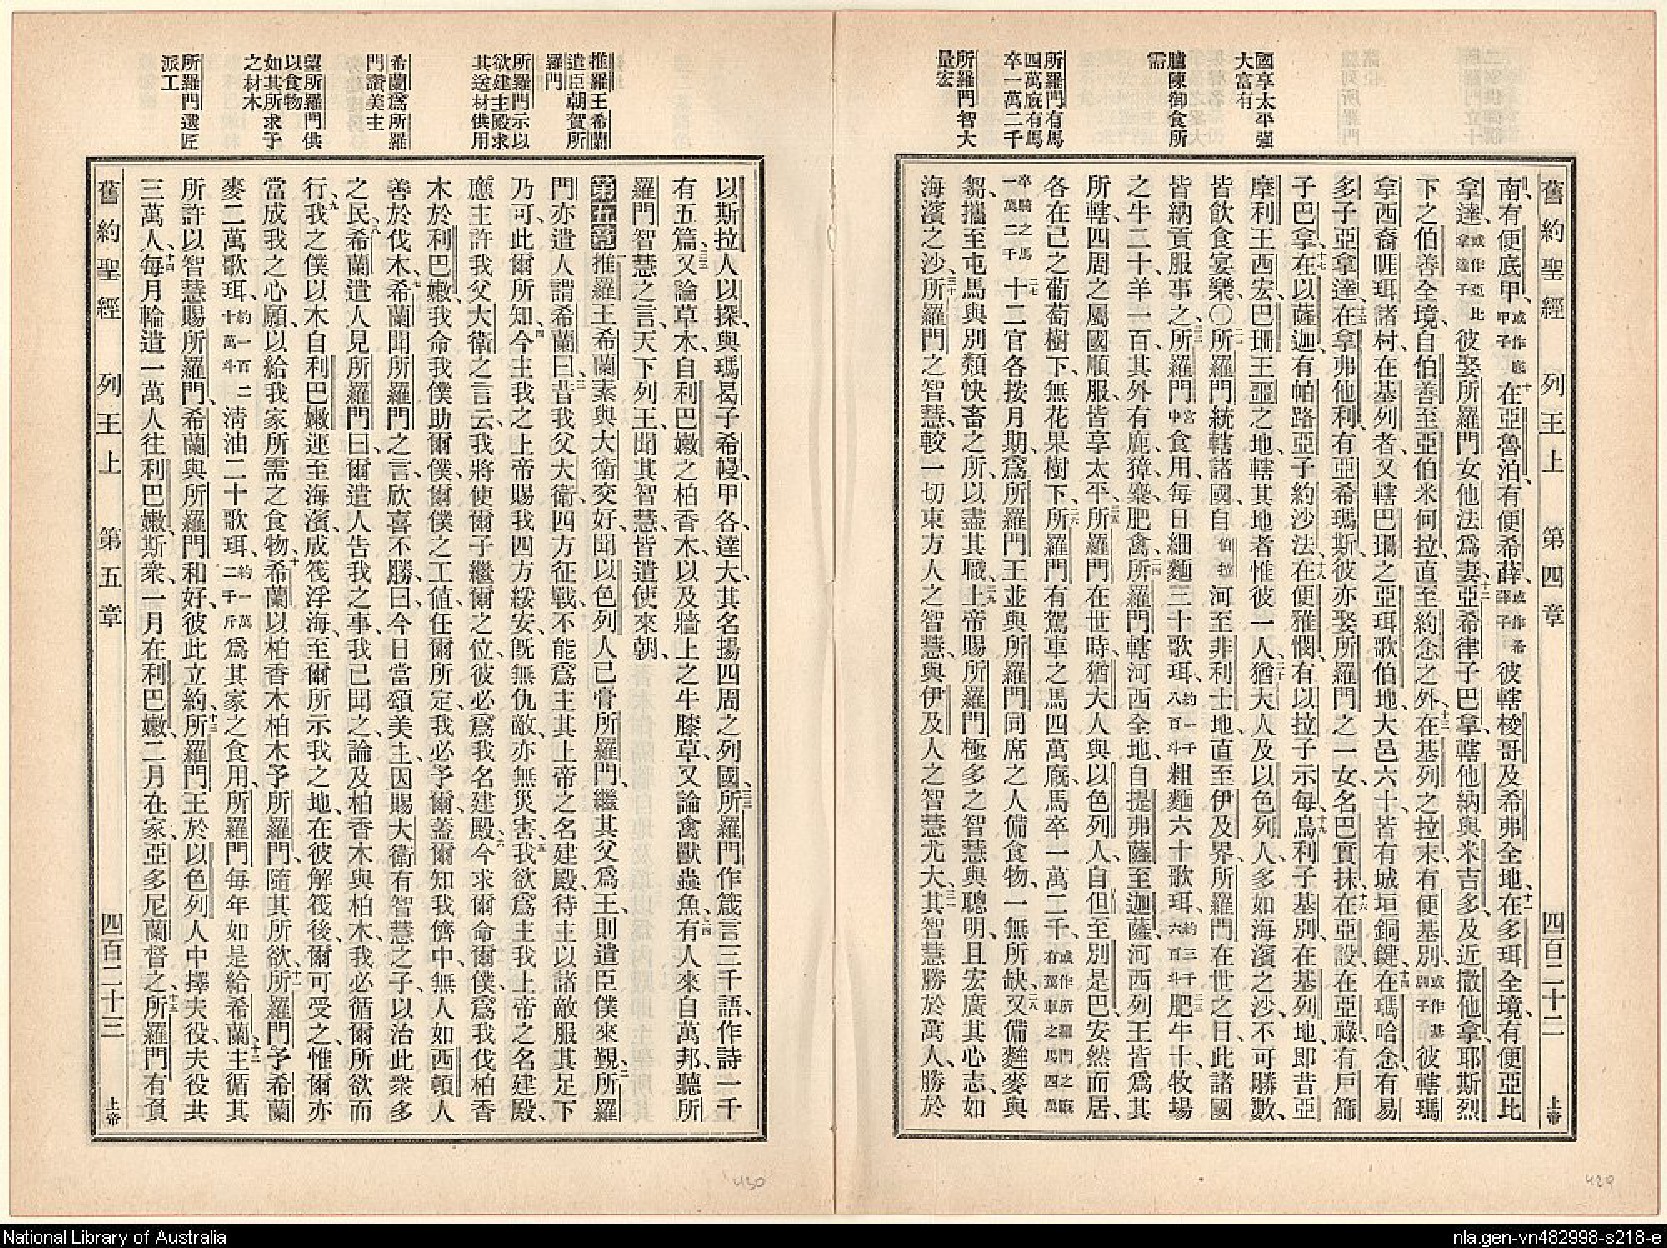 國享太平強
大富有
臚陳御食所
需
所羅門有馬
四萬底有馬
卒一萬二千
所羅門智大
量宏
舊約聖經 列王上 第四章 四百二十二 上帝
南、有便底甲、或作底甲子在亞魯泊、有便希薛、或作希薛子彼轄梭哥及希弗全地、在多珥全境、有便亞比
拿達、或作亞比拿達子彼娶所羅門女他法爲妻、亞希律子巴拿、轄他納與米吉多及近撒他拿、耶斯烈
下之伯善全境、自伯善至亞伯米何拉、直至約念之外、在基列之拉末、有便基別、或作基別子彼轄瑪
拿西裔睚珥諸村、在基列者、又轄巴珊之亞珥歌伯地、大邑六十、皆有城垣銅鍵、在瑪哈念、有易
多子亞拿達、在拿弗他利、有亞希瑪斯、彼亦娶所羅門之一女、名巴實抹、在亞設、在亞祿、有戶篩
子巴拿、在以薩迦、有帕路亞子約沙法、在便雅憫、有以拉子示每、烏利子基別、在基列地、即昔亞
摩利王西宏、巴珊王噩之地、轄其地者惟彼一人、猶大人及以色列人、多如海濱之沙、不可勝數、
皆飲食宴樂、〇所羅門統轄諸國、自伯拉河至非利士地、直至伊及界、所羅門在世之日、此諸國
皆納貢服事之、所羅門宮中食用、每日細麵三十歌珥、約一千八百斗粗麵六十歌珥、約三千六百斗肥牛十、牧場
之牛二十、羊一百、其外有鹿獐麋肥禽、所羅門轄河西全地、自提弗薩至迦薩、河西列王皆爲其
所轄、四周之屬國順服、皆享太平、所羅門在世時、猶大人與以色列人、自但至別是巴、安然而居、
各在己之葡萄樹下、無花果樹下、所羅門有駕車之馬四萬廄、馬卒一萬二千、或作所羅門之廄有駕車之馬四萬
卒騎之馬一萬二千十二官各按月期、爲所羅門王並與所羅門同席之人備食物、一無所缺、又備麰麥與
芻、攜至屯馬與別類快畜之所、以盡其職、上帝賜所羅門極多之智慧與聰明、且宏廣其心志、如
海濱之沙、所羅門之智慧、較一切東方人之智慧、與伊及人之智慧尤大、其智慧勝於萬人、勝於
推羅王希蘭
遣臣朝賀所
羅門
所羅門示以
欲建主殿求
其送材供用
希蘭爲所羅
門讚美主
望所羅門供
以食物
如其所求予
之材木
所羅門選匠
派工
以斯拉人以探、與瑪曷子希幔、甲各、達大、其名揚四周之列國、所羅門作箴言三千語、作詩一千
有五篇、又論草木、自利巴嫩之柏香木、以及牆上之牛膝草、又論禽獸蟲魚、有人來自萬邦、聽所
羅門智慧之言、天下列王、聞其智慧、皆遣使來朝、
第五章推羅王希蘭、素與大衛交好、聞以色列人已膏所羅門、繼其父爲王、則遣臣僕來覲、所羅
門亦遣人謂希蘭曰、昔我父大衛、四方征戰、不能爲主其上帝之名建殿、待主以諸敵服其足下
乃可、此爾所知、今主我之上帝賜我四方綏安、既無仇敵、亦無災害、我欲爲主我上帝之名建殿、
應主許我父大衛之言云、我將使爾子繼爾之位、彼必爲我名建殿、今求爾命爾僕、爲我伐柏香
木於利巴嫩、我命我僕助爾僕、爾僕之工值、任爾所定、我必予爾、蓋爾知我儕中無人如西頓人
善於伐木、希蘭聞所羅門之言、欣喜不勝、曰、今日當頌美主、因賜大衛有智慧之子、以治此衆多
之民、希蘭遣人見所羅門曰、爾遣人告我之事、我已聞之、論及柏香木與柏木、我必循爾所欲而
行、我之僕以木自利巴嫩運至海濱、成筏浮海、至爾所示我之地、在彼解筏後、爾可受之、惟爾亦
當成我之心願、以給我家所需之食物、希蘭以柏香木柏木予所羅門、隨其所欲、所羅門予希蘭
麥二萬歌珥、約一百二十萬斗清油二十歌珥、約一萬二千斤爲其家之食用、所羅門每年如是給希蘭、主循其
所許、以智慧賜所羅門、希蘭與所羅門和好、彼此立約、所羅門王於以色列人中擇夫役、夫役共
三萬人、每月輪遣一萬人往利巴嫩、斯衆、一月在利巴嫩、二月在家、亞多尼蘭督之、所羅門有負
舊約聖經 列王上 第五章 四百二十三 上帝
430
429
National Library of Australia
nla.gen-vn482998-s218-e